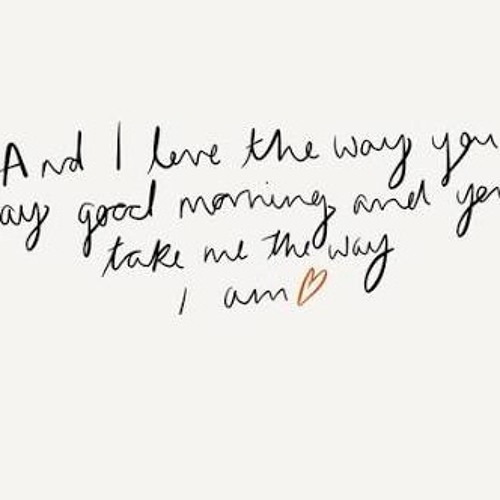 And I love the way you
ay good morning and you
take me the way
I am